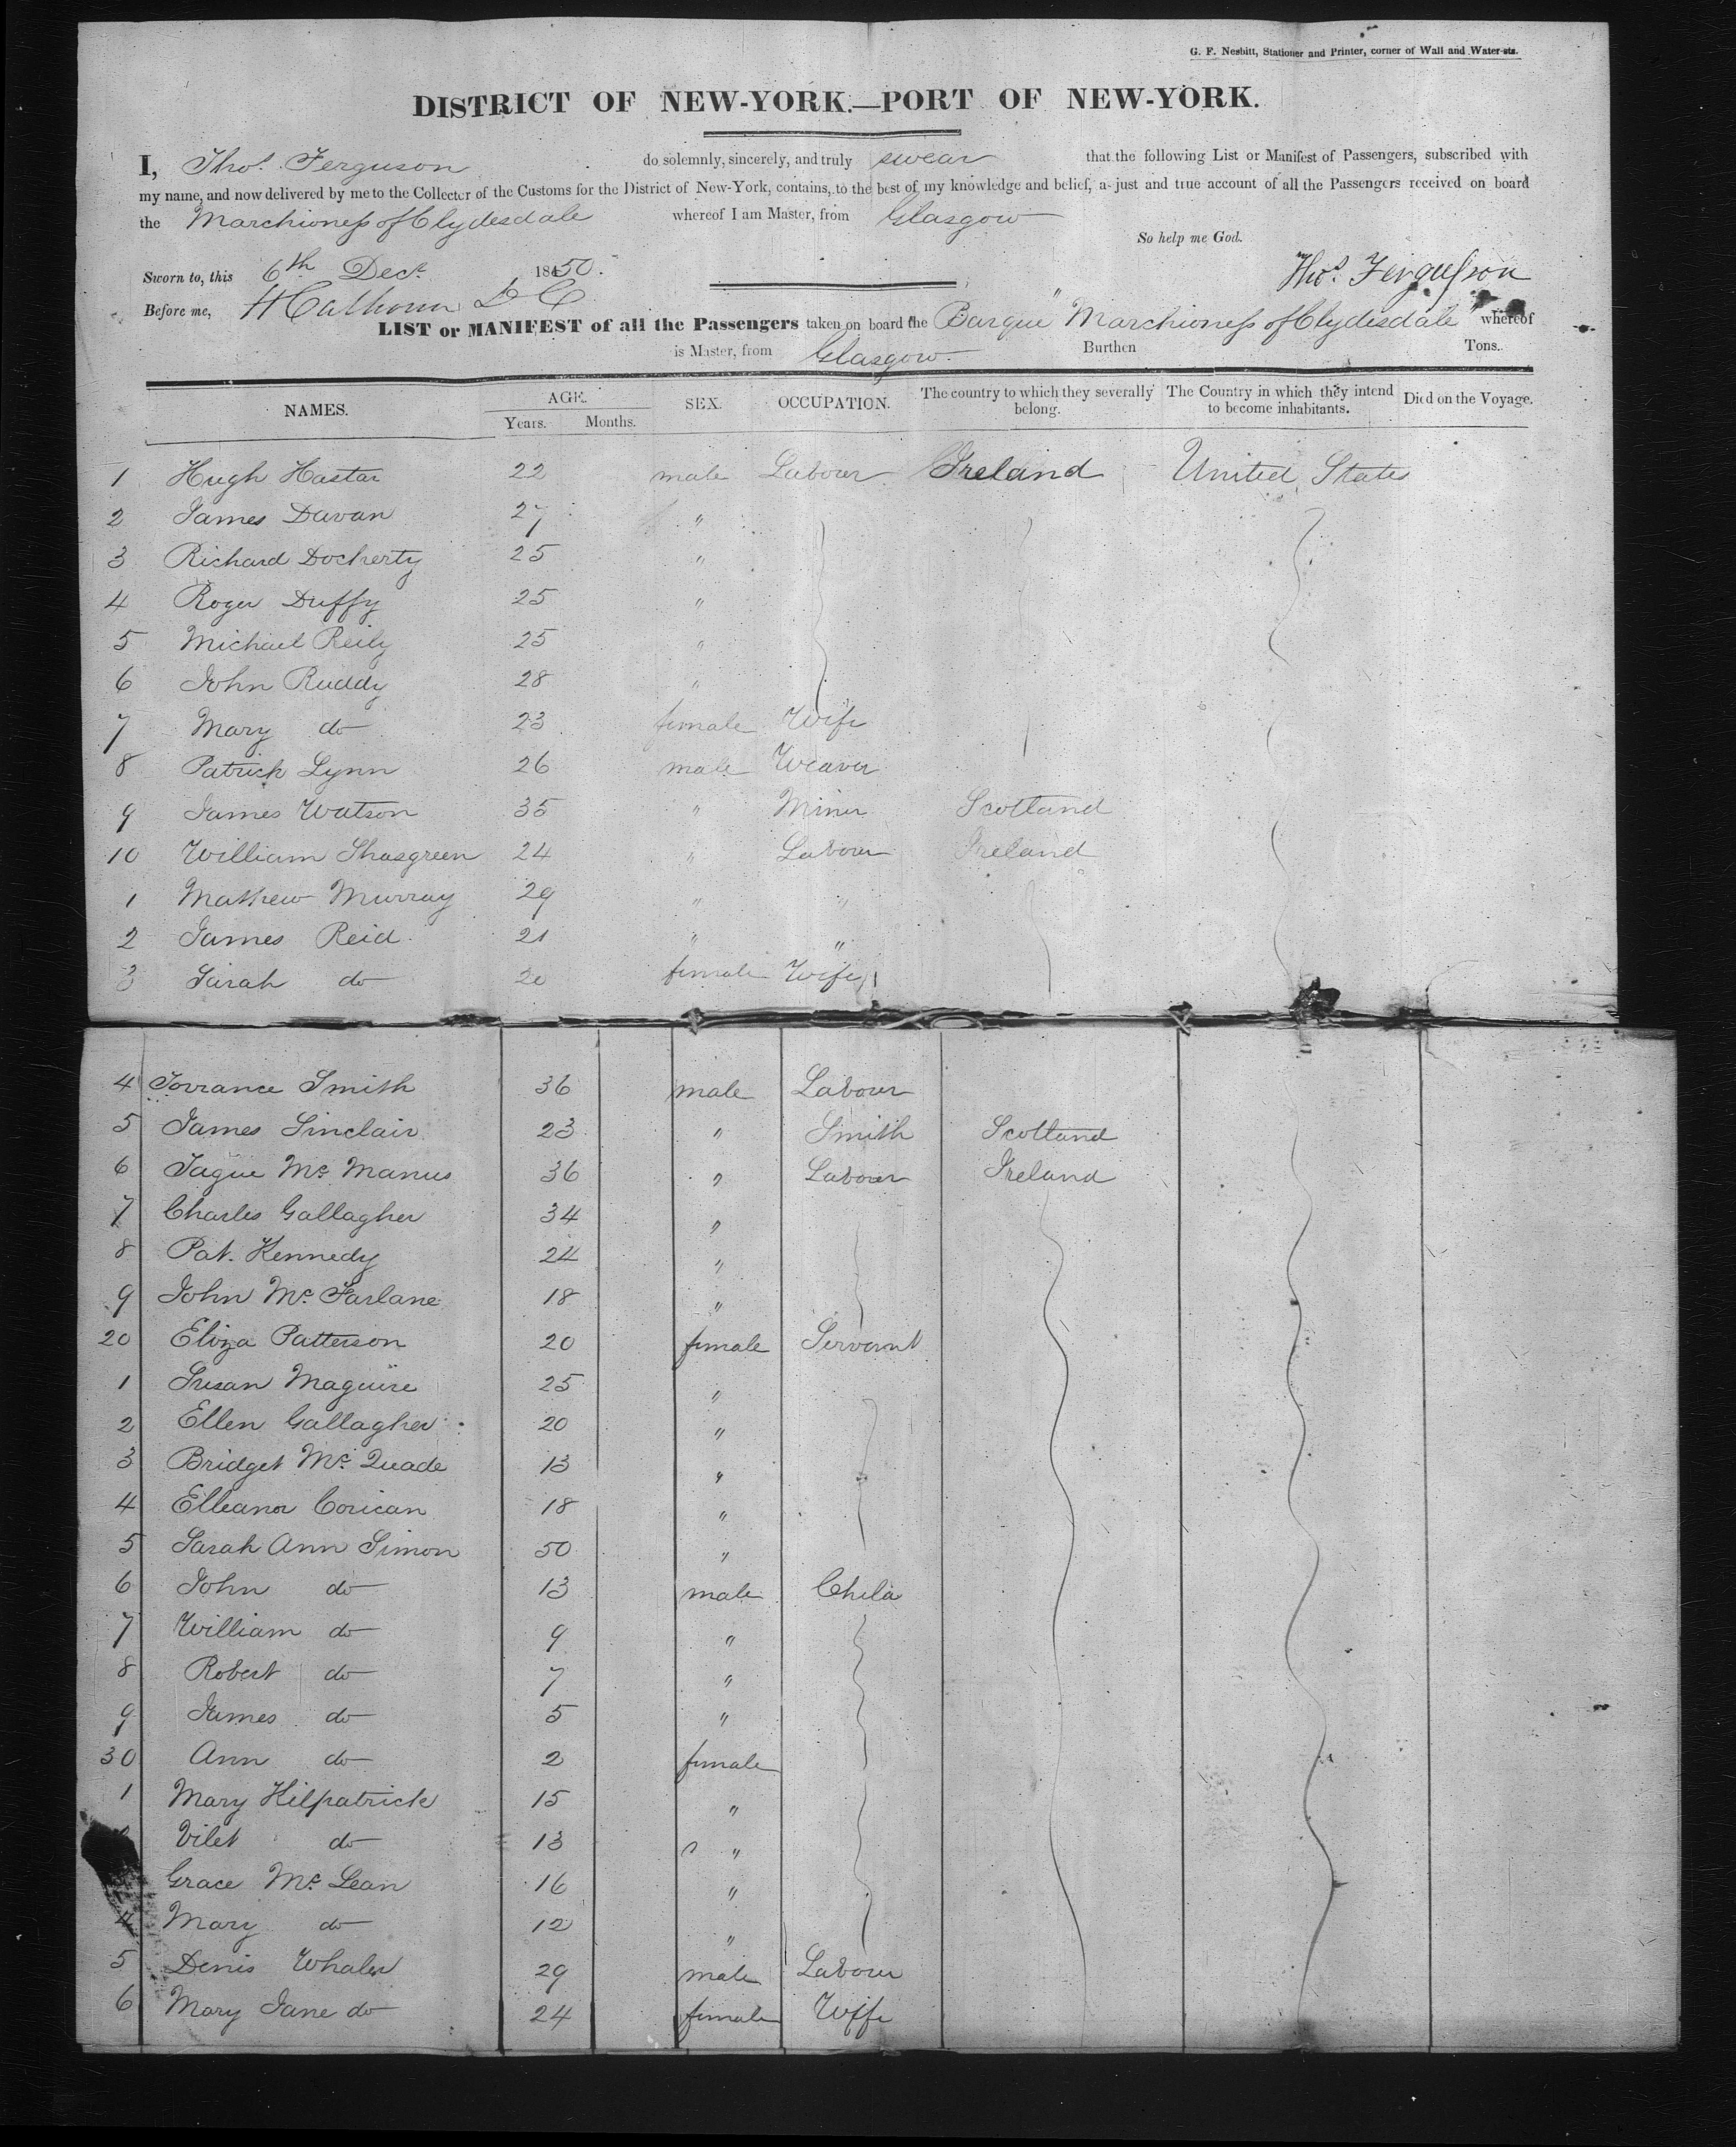 G. F. Nesbitt, Stationer and Printer, corner of Wall and Water-sts.
DISTRICT OF NEW-YORK.—PORT OF NEW-YORK.
I, Thos. Ferguson do solemnly, sincerely, and truly swear that the following List or Manifest of Passengers, subscribed with
my name, and now delivered by me to the Collector of the Customs for the District of New-York, contains, to the best of my knowledge and belief, a just and true account of all the Passengers received on board
the Marchioness of Clydesdale whereof I am Master, from Glasgow
So help me God.
Sworn to, this 6th Decr. 1850. Thos. Fergusson
Before me, H Calhoun D C
LIST or MANIFEST of all the Passengers taken on board the Barque "Marchioness of Clydesdale" whereof
is Master, from Glasgow Burthen Tons.
NAMES. AGE. SEX. OCCUPATION. The country to which they severally belong. The Country in which they intend to become inhabitants. Died on the Voyage.
Years. Months.
1 Hugh Hastar 22 male Labour Ireland United States
2 James Davan 27 "
3 Richard Docherty 25 "
4 Roger Duffy 25 "
5 Michael Reily 25 "
6 John Ruddy 28 "
7 Mary do 23 female Wife
8 Patrick Lynn 26 male Weaver
9 James Watson 35 " Miner Scotland
10 William Shasgreen 24 " Labour Ireland
1 Mathew Murray 29 " "
2 James Reid 21 " "
3 Sarah do 20 female Wife
4 Torrance Smith 36 male Labour
5 James Sinclair 23 " Smith Scotland
6 Tague Mc Manus 36 " Labour Ireland
7 Charles Gallagher 34 "
8 Pat. Kennedy 24 "
9 John Mc Farlane 18 "
20 Eliza Patterson 20 female Servant
1 Susan Maguire 25 "
2 Ellen Gallagher 20 "
3 Bridget Mc Quade 13 "
4 Elleanor Corican 18 "
5 Sarah Ann Simon 50 "
6 John do 13 male Child
7 William do 9 "
8 Robert do 7 "
9 James do 5 "
30 Ann do 2 female
1 Mary Kilpatrick 15 "
Vilet do 13 "
Grace Mc Lean 16 "
4 Mary do 12 "
5 Denis Whalen 29 male Labour
6 Mary Jane do 24 female Wife